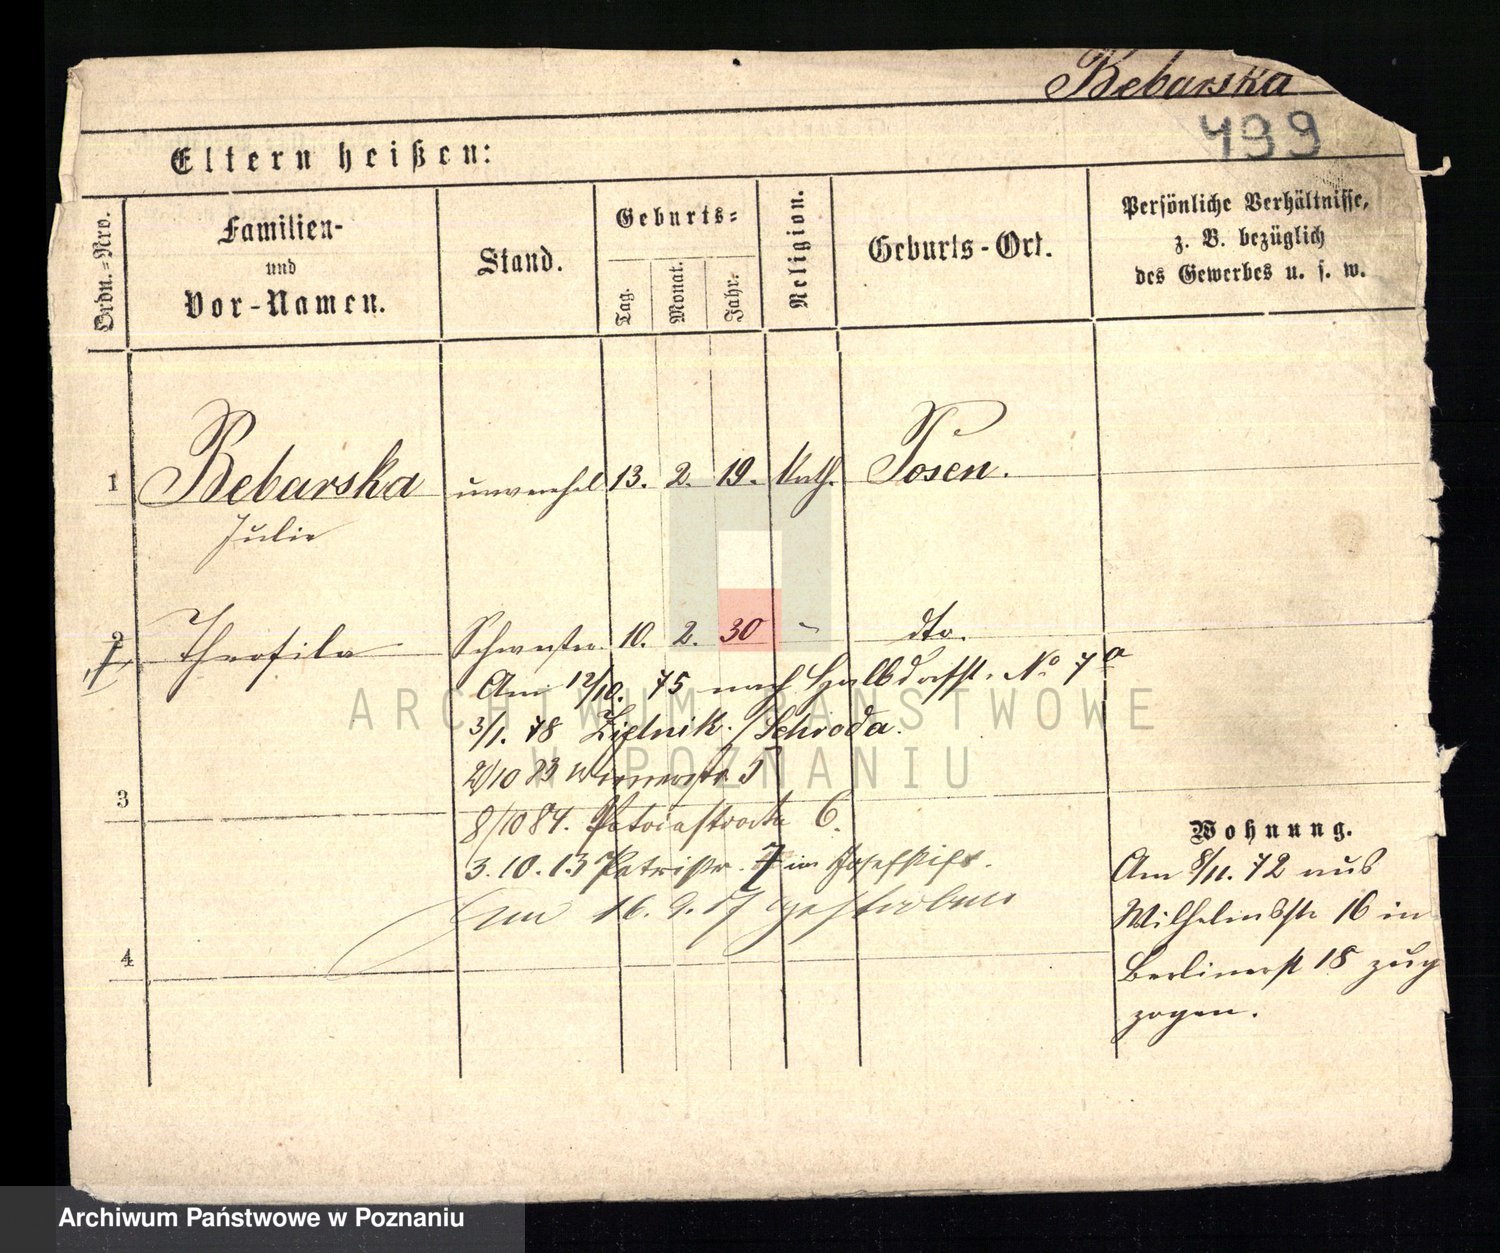 Bebarska
499
Eltern heißen:
Ordn.=Nro.
Familien-
und
Vor-Namen.
Stand.
Geburts=
Tag.
Monat.
Jahr.
Religion.
Geburts-Ort.
Persönliche Verhältnisse,
z. B. bezüglich
des Gewerbes u. s. w.
1 Bebarska unverehel 13. 2. 19. Kath. Posen.
Julie
2 Theofila Schwester 10. 2. 30 " dto.
Am 12/10. 75 nach Halbdorfst. No 7a
3/1. 78 Zietnik / Schroda.
2/10 83 Wienerstr 5
8/10 84. Patriastrasse 6.
3. 10. 13 Patristr. 7 im Josefstift.
Am 16. 9. 17 gestorben
3
4
Wohnung.
Am 8/11. 72 aus
Wilhelmsstr 16 in
Berlinerst 18 zug
zogen.
ARCHIWUM PAŃSTWOWE
W POZNANIU
Archiwum Państwowe w Poznaniu